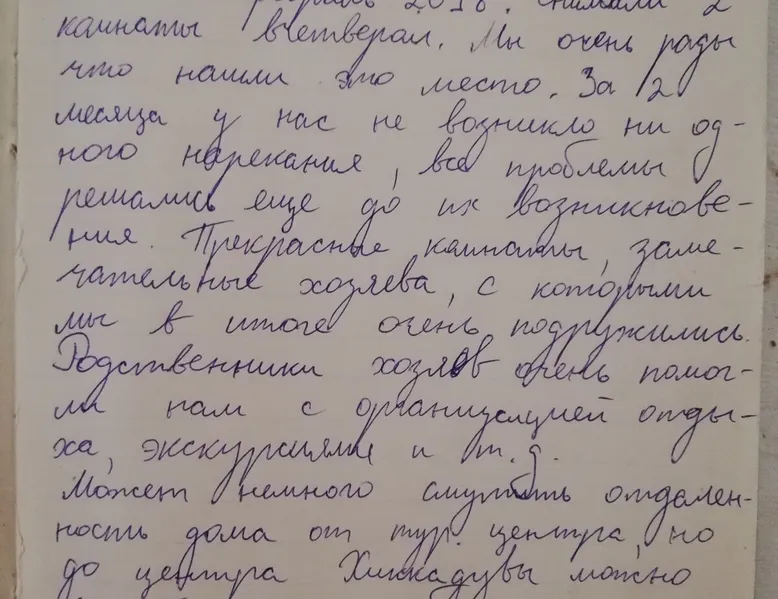 2018. снимали 2
комнаты вчетвером. Мы очень рады
что нашли это место. За 2
месяца у нас не возникло ни од-
ного нарекания, все проблемы
решались еще до их возникнове-
ния. Прекрасные комнаты, заме-
чательные хозяева, с которыми
мы в итоге очень подружились.
Родственники хозяев очень помог-
ли нам с организацией отды-
ха, экскурсиями и т.д.
Может немного смутить отдален-
ность дома от тур. центра, но
до центра Хиккадувы можно